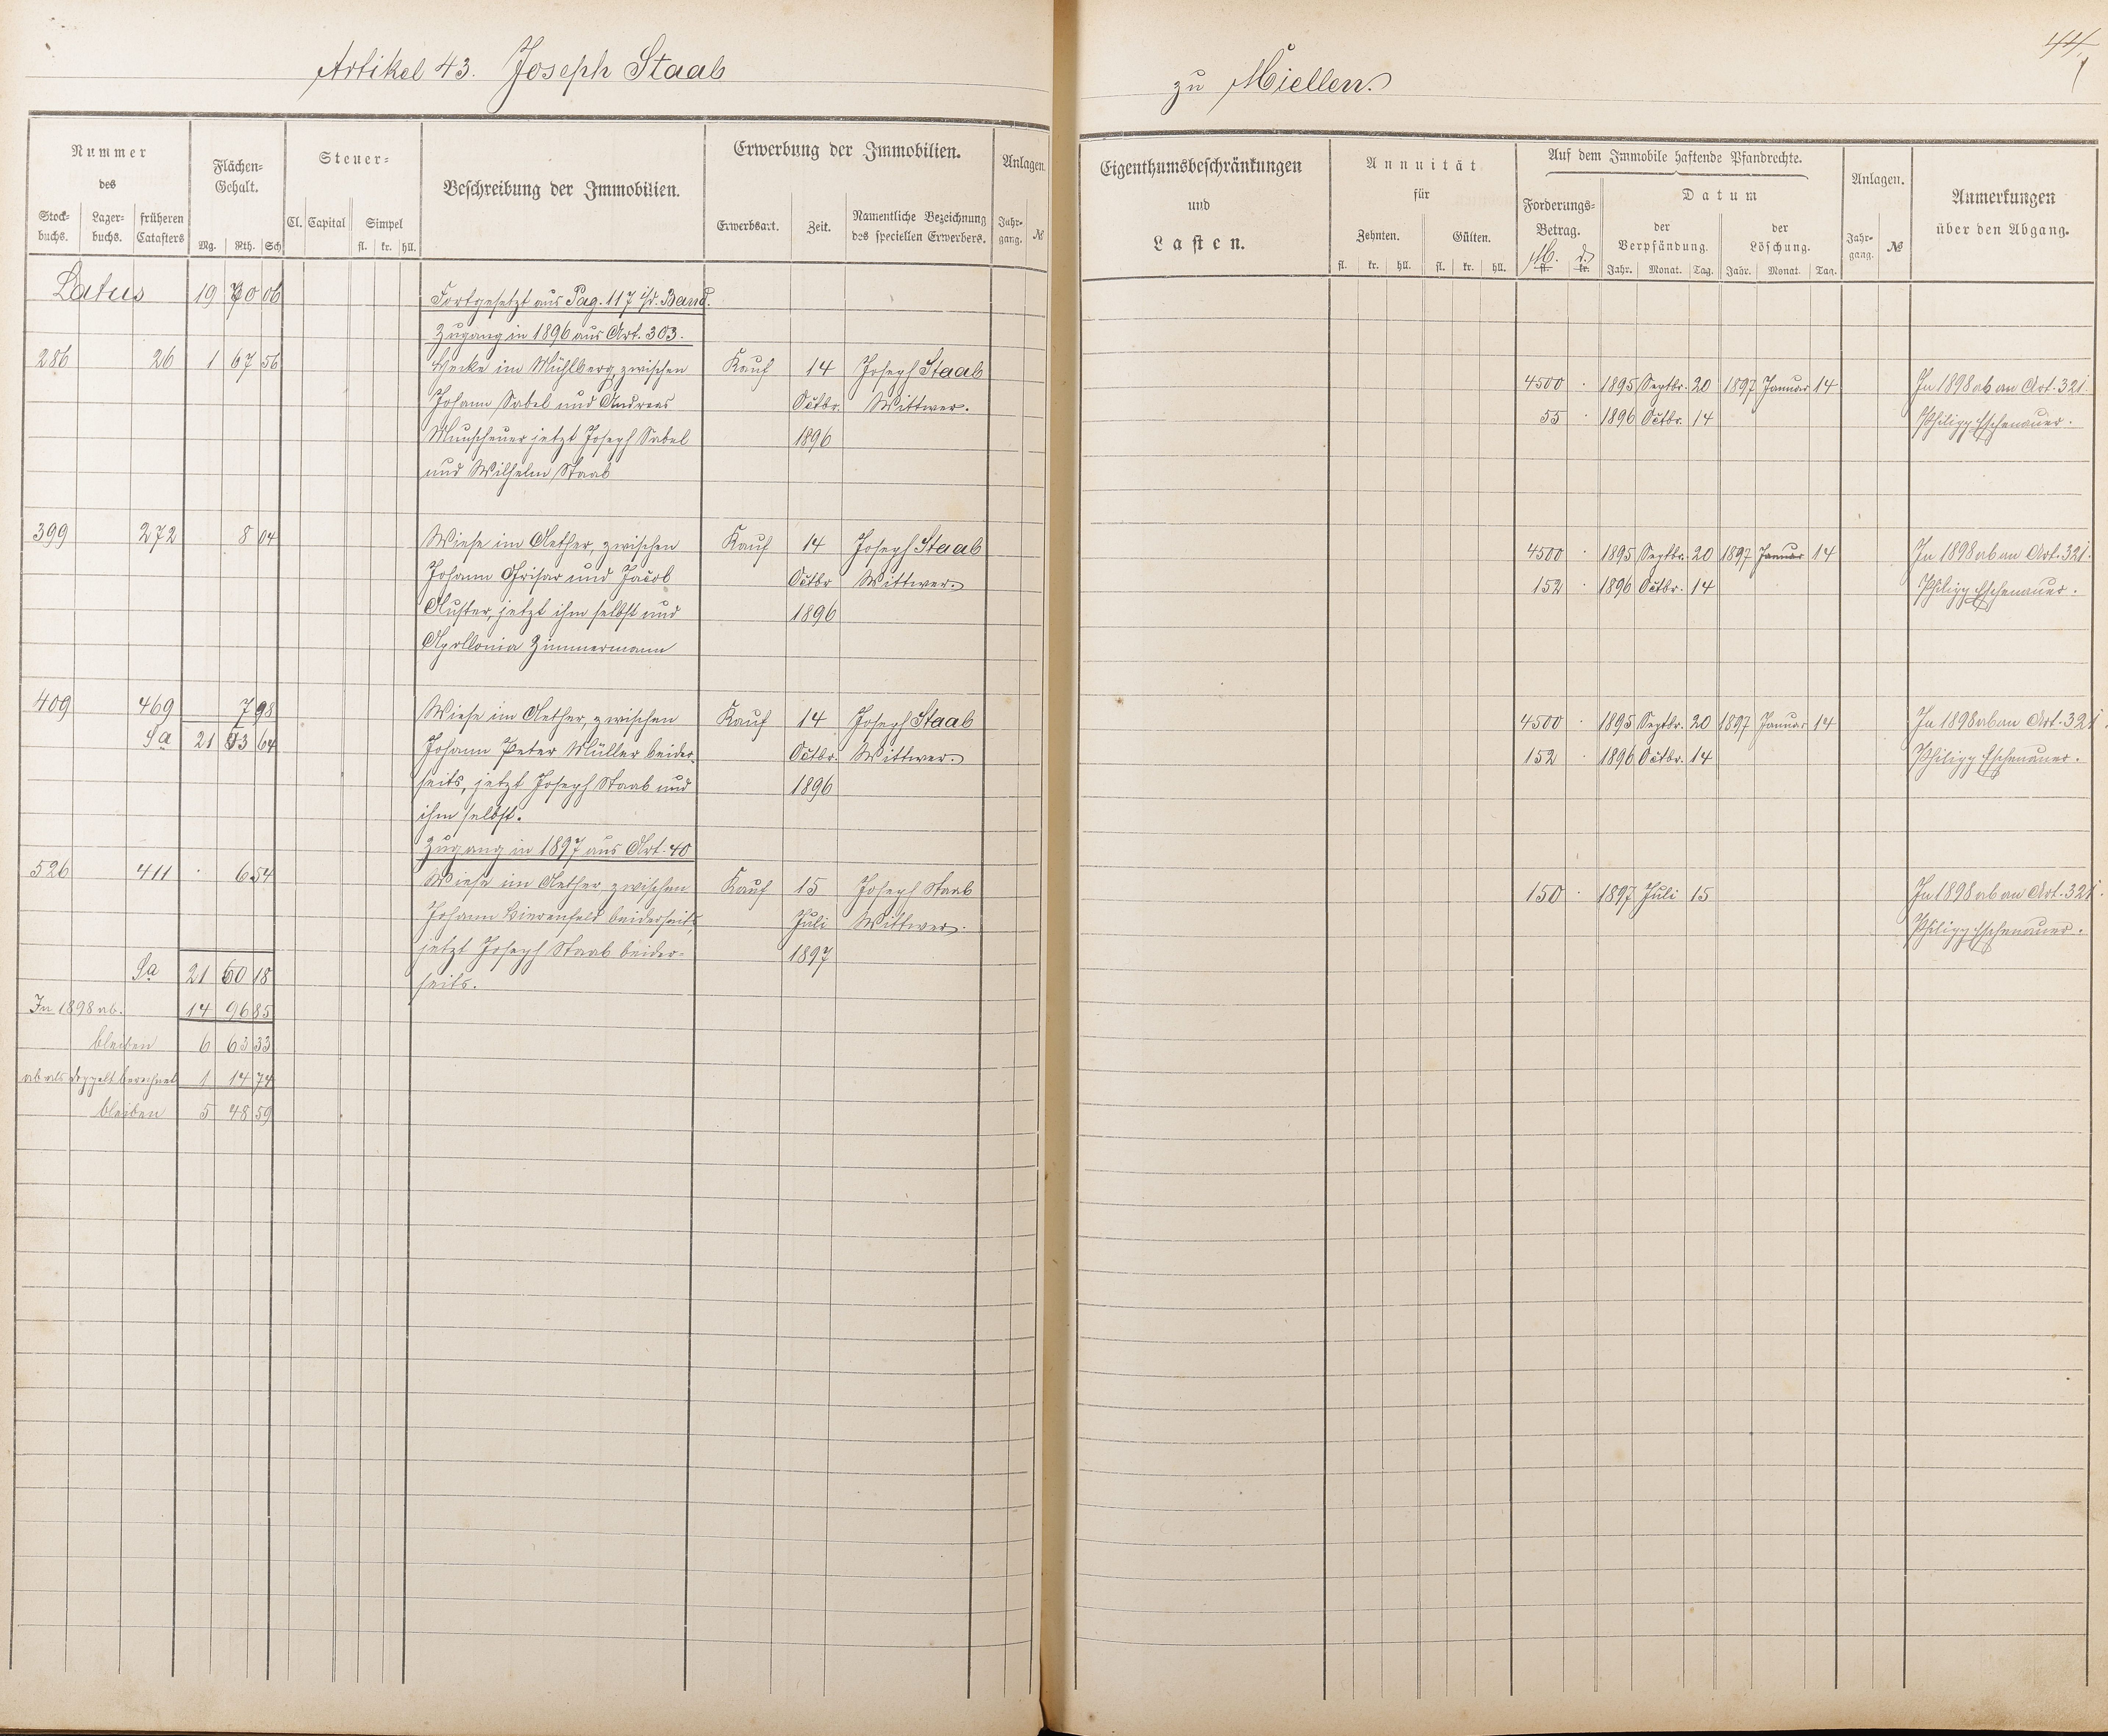 Artikel 43. Joseph Staab
zu Miellen.
44
Nummer
des
Stock-
buchs.
Lager-
buchs.
früheren
Catasters
Flächen-
Gehalt.
Mg. Rth. Sch
Steuer-
Cl. Capital
Simpel
fl. kr. hll.
Beschreibung der Immobilien.
Erwerbung der Immobilien.
Erwerbsart.
Zeit.
Namentliche Bezeichnung
des speciellen Erwerbers.
Anlagen.
Jahr-
gang.
№
Eigenthumsbeschränkungen
und
Lasten.
Annuität
für
Zehnten.
fl. kr. hll.
Gülten.
fl. kr. hll.
Auf dem Immobile haftende Pfandrechte.
Forderungs-
Betrag.
M. d.
fl. kr.
Datum
der
Verpfändung.
Jahr. Monat. Tag.
der
Löschung.
Jahr. Monat. Tag.
Anlagen.
Jahr-
gang.
№
Anmerkungen
über den Abgang.
Latus 19 70 06 Fortgesetzt aus Pag. 117 Band.
Zugang in 1896 aus Art. 303.
286 26 1 67 56 Hecke im Mühlberg, zwischen Kauf 14 Joseph Staab 4500 · 1895 Septbr. 20 1897 Januar 14 In 1898 ab an Art. 321.
Johann Sabel und Andreas Octbr. Wittwer. 55 · 1896 Octbr. 14 Philipp Eschenauer.
Munscheuer jetzt Joseph Sabel 1896
und Wilhelm Staab
399 272 8 04 Wiese im Aether, zwischen Kauf 14 Joseph Staab 4500 · 1895 Septbr. 20 1897 Januar 14 In 1898 ab an Art. 321.
Johann Grisar und Jacob Octbr Wittwer. 152 · 1896 Octbr. 14 Philipp Eschenauer.
Auster, jetzt ihm selbst und 1896
Apollonia Zimmermann
409 469 7 98 Wiese im Aether, zwischen Kauf 14 Joseph Staab 4500 · 1895 Septbr. 20 1897 Januar 14 In 1898 ab an Art. 321.
Sa 21 53 64 Johann Peter Müller beider- Octbr. Wittwer. 152 · 1896 Octbr. 14 Philipp Eschenauer.
seits, jetzt Joseph Staab und 1896
ihm selbst.
Zugang in 1897 aus Art. 40
526 411 · 6 54 Wiese im Aether zwischen Kauf 15 Joseph Staab 150 · 1897 Juli 15 In 1898 ab an Art. 321.
Johann Bierenfeld beiderseits Juli Wittwer. Philipp Eschenauer.
jetzt Joseph Staab beider- 1897
Sa 21 60 18 seits.
In 1898 ab. 14 96 85
bleiben 6 63 33
ab als doppelt berechnet 1 14 74
bleiben 5 48 59